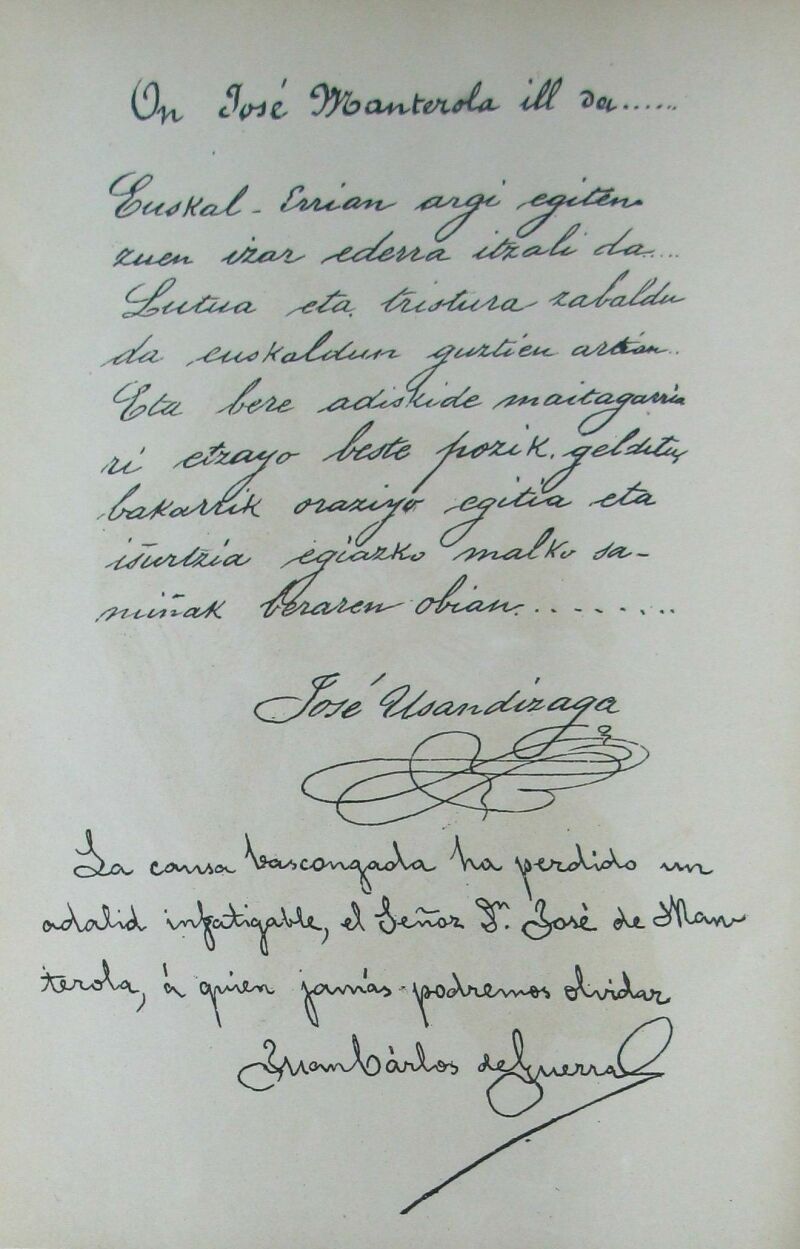 On José Manterola ill da......
Euskal-Errian argi egiten
zuen izar ederra itzali da....
Lutua eta tristura zabaldu
da euskaldun guztien artian..
Eta bere adiskide maitagarria
ri etzayo beste pozik gelditu,
bakarrik oraziyo egitia eta
isurtzia egiazko malko sa-
miñak beraren obian.........
José Usandizaga
La causa bascongada ha perdido un
adalid infatigable, el Señor Dn. José de Man-
terola, á quien jamás podremos olvidar
Juan Cárlos de Guerra